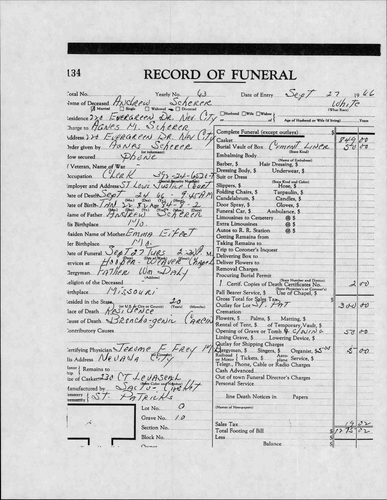 134
RECORD OF FUNERAL
otal No. Yearly No. 63 Date of Entry Sept 27 1966
ame of Deceased Andrew Scherer White
Married Single Widowed Divorced Husband Wife Widow (What Race)
esidence 220 Evergreen Dr. Nev. City Age of Husband or Wife (if living) Years
harge to Agnes M. Scherer
ddress 220 Evergreen Dr. Nev City
Order given by Agnes Scherer
ow secured Phone
f Veteran, Name of War
Occupation Clerk
mployer and Address St Louis Justice Court
ate of Death Sept 24 66 9:45 AM
ate of Birth Jan 22
ame of Father Andrew Scherer
is Birthplace Mo.
aiden Name of Mother Emma Eifert
er Birthplace Mo.
ate of Funeral Sept 27 Tues 2:30 PM
ervices at Hooper-Weaver Chapel
lergyman Father Wm Daly
eligion of the Deceased
irthplace Missouri
esided in the State 20
lace of Death Residence
ause of Death Broncho-genic Carcin
ontributory Causes
ertifying Physician Jerome E Frey MD
is Address Nevada City
Remains to
ize of Casket
anufactured by Sacto-Casket
St. Patricks
Lot No. 0
Grave No. 10
Section No.
Block No.
Owner
Complete Funeral (except outlays) $
Casket 849 00
Burial Vault or Box Cement Liner 50 00
Embalming Body
(Name of Embalmer)
Barber, $ Hair Dressing, $
Dressing Body, $ Underwear, $
Suit or Dress
Slippers, $ Hose, $
Folding Chairs, $ Tarpaulin, $
Candelabrum, $ Candles, $
Door Spray, $ Gloves, $
Funeral Car, $ Ambulance, $
Limousines to Cemetery @ $
Extra Limousines @ $
Autos to R. R. Station @ $
Getting Remains from
Taking Remains to
Trip to Coroner's Inquest
Delivering Box to
Deliver Flowers to
Removal Charges
Procuring Burial Permit
1 Certif. Copies of Death Certificates No. 2 00
Pall Bearer Service, $ Use of Chapel, $
Gross Total for Sales Tax
Outlay for Lot St Pat 300 00
Cremation
Flowers, $ Palms, $ Matting, $
Rental of Tent, $ of Temporary Vault, $
Opening of Grave or Tomb & Closing 50 00
Lining Grave, $ Lowering Device, $
Outlay for Shipping Charges
Clergymen, $ Singers, $ Organist, $ 5 00
Tickets, $ Service, $
Telgr., Phone, Cable or Radio Charges
Cash Advanced
Out of town Funeral Director's Charges
Personal Service
line Death Notices in Papers
(Names of Newspapers)
Sales Tax 19 02
Total Footing of Bill $ 1275 02
Less
Balance $